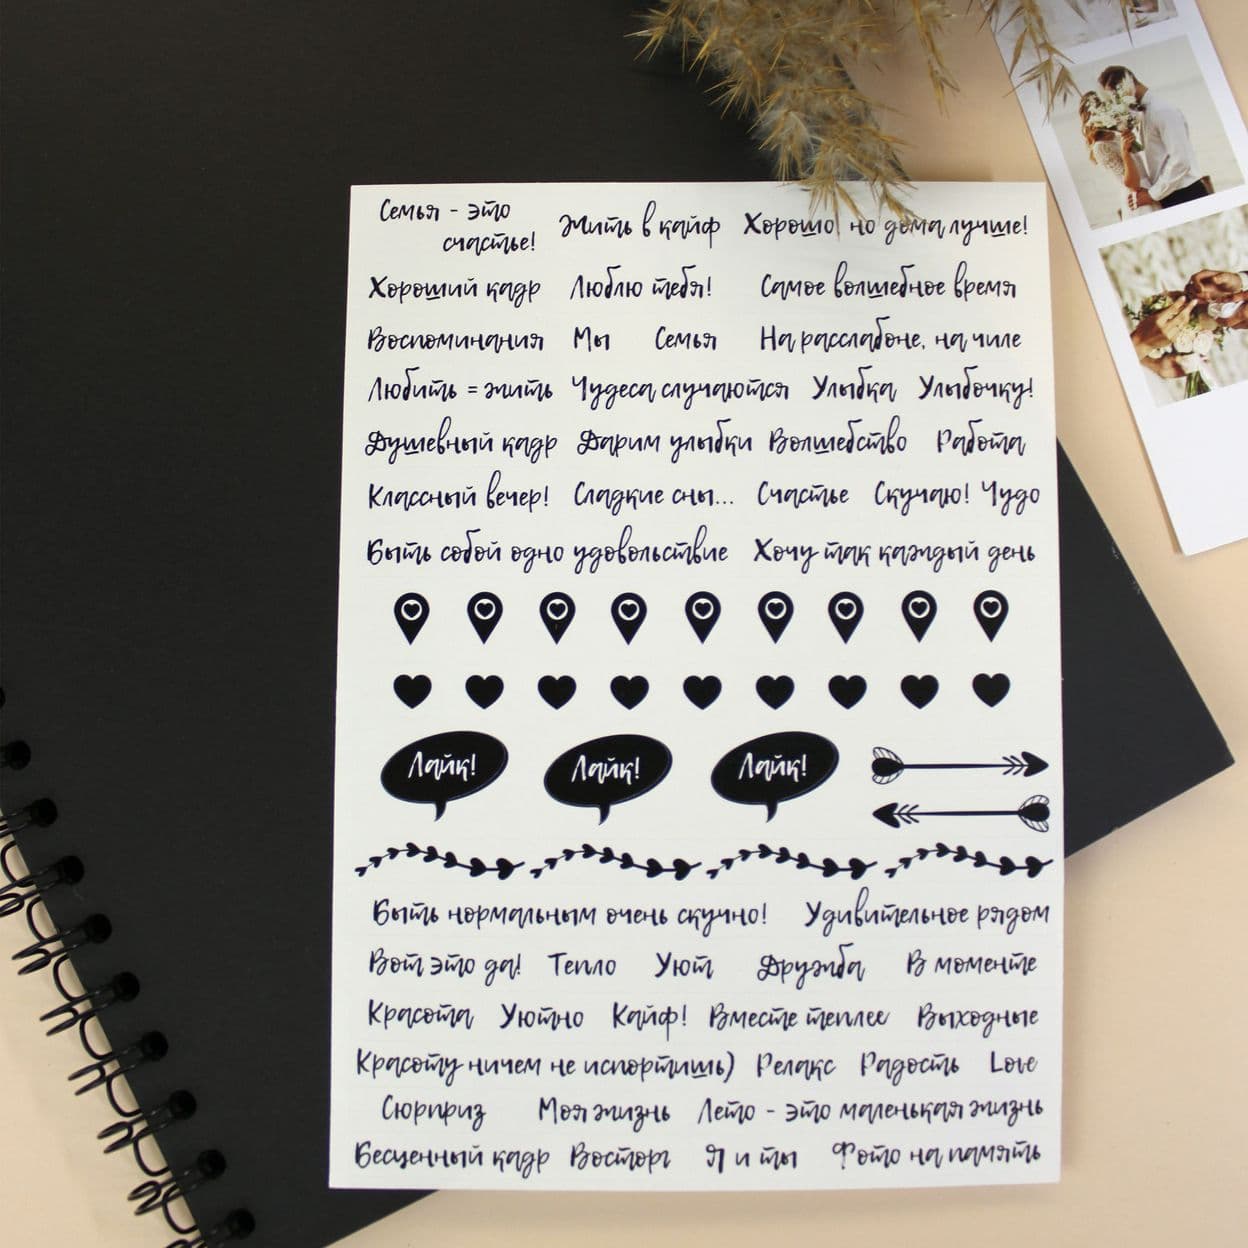 Семья - это счастье! Жить в кайф Хорошо, но дома лучше!
Хороший кадр Люблю тебя! Самое волшебное время
Воспоминания Мы Семья На расслабоне, на чиле
Любить = жить Чудеса случаются Улыбка Улыбочку!
Душевный кадр Дарим улыбки Волшебство Работа
Классный вечер! Сладкие сны... Счастье Скучаю! Чудо
Быть собой одно удовольствие Хочу так каждый день
Лайк! Лайк! Лайк!
Быть нормальным очень скучно! Удивительное рядом
Вот это да! Тепло Уют Дружба В моменте
Красота Уютно Кайф! Вместе теплее Выходные
Красоту ничем не испортишь) Релакс Радость Love
Сюрприз Моя жизнь Лето - это маленькая жизнь
Бесценный кадр Восторг Я и ты Фото на память